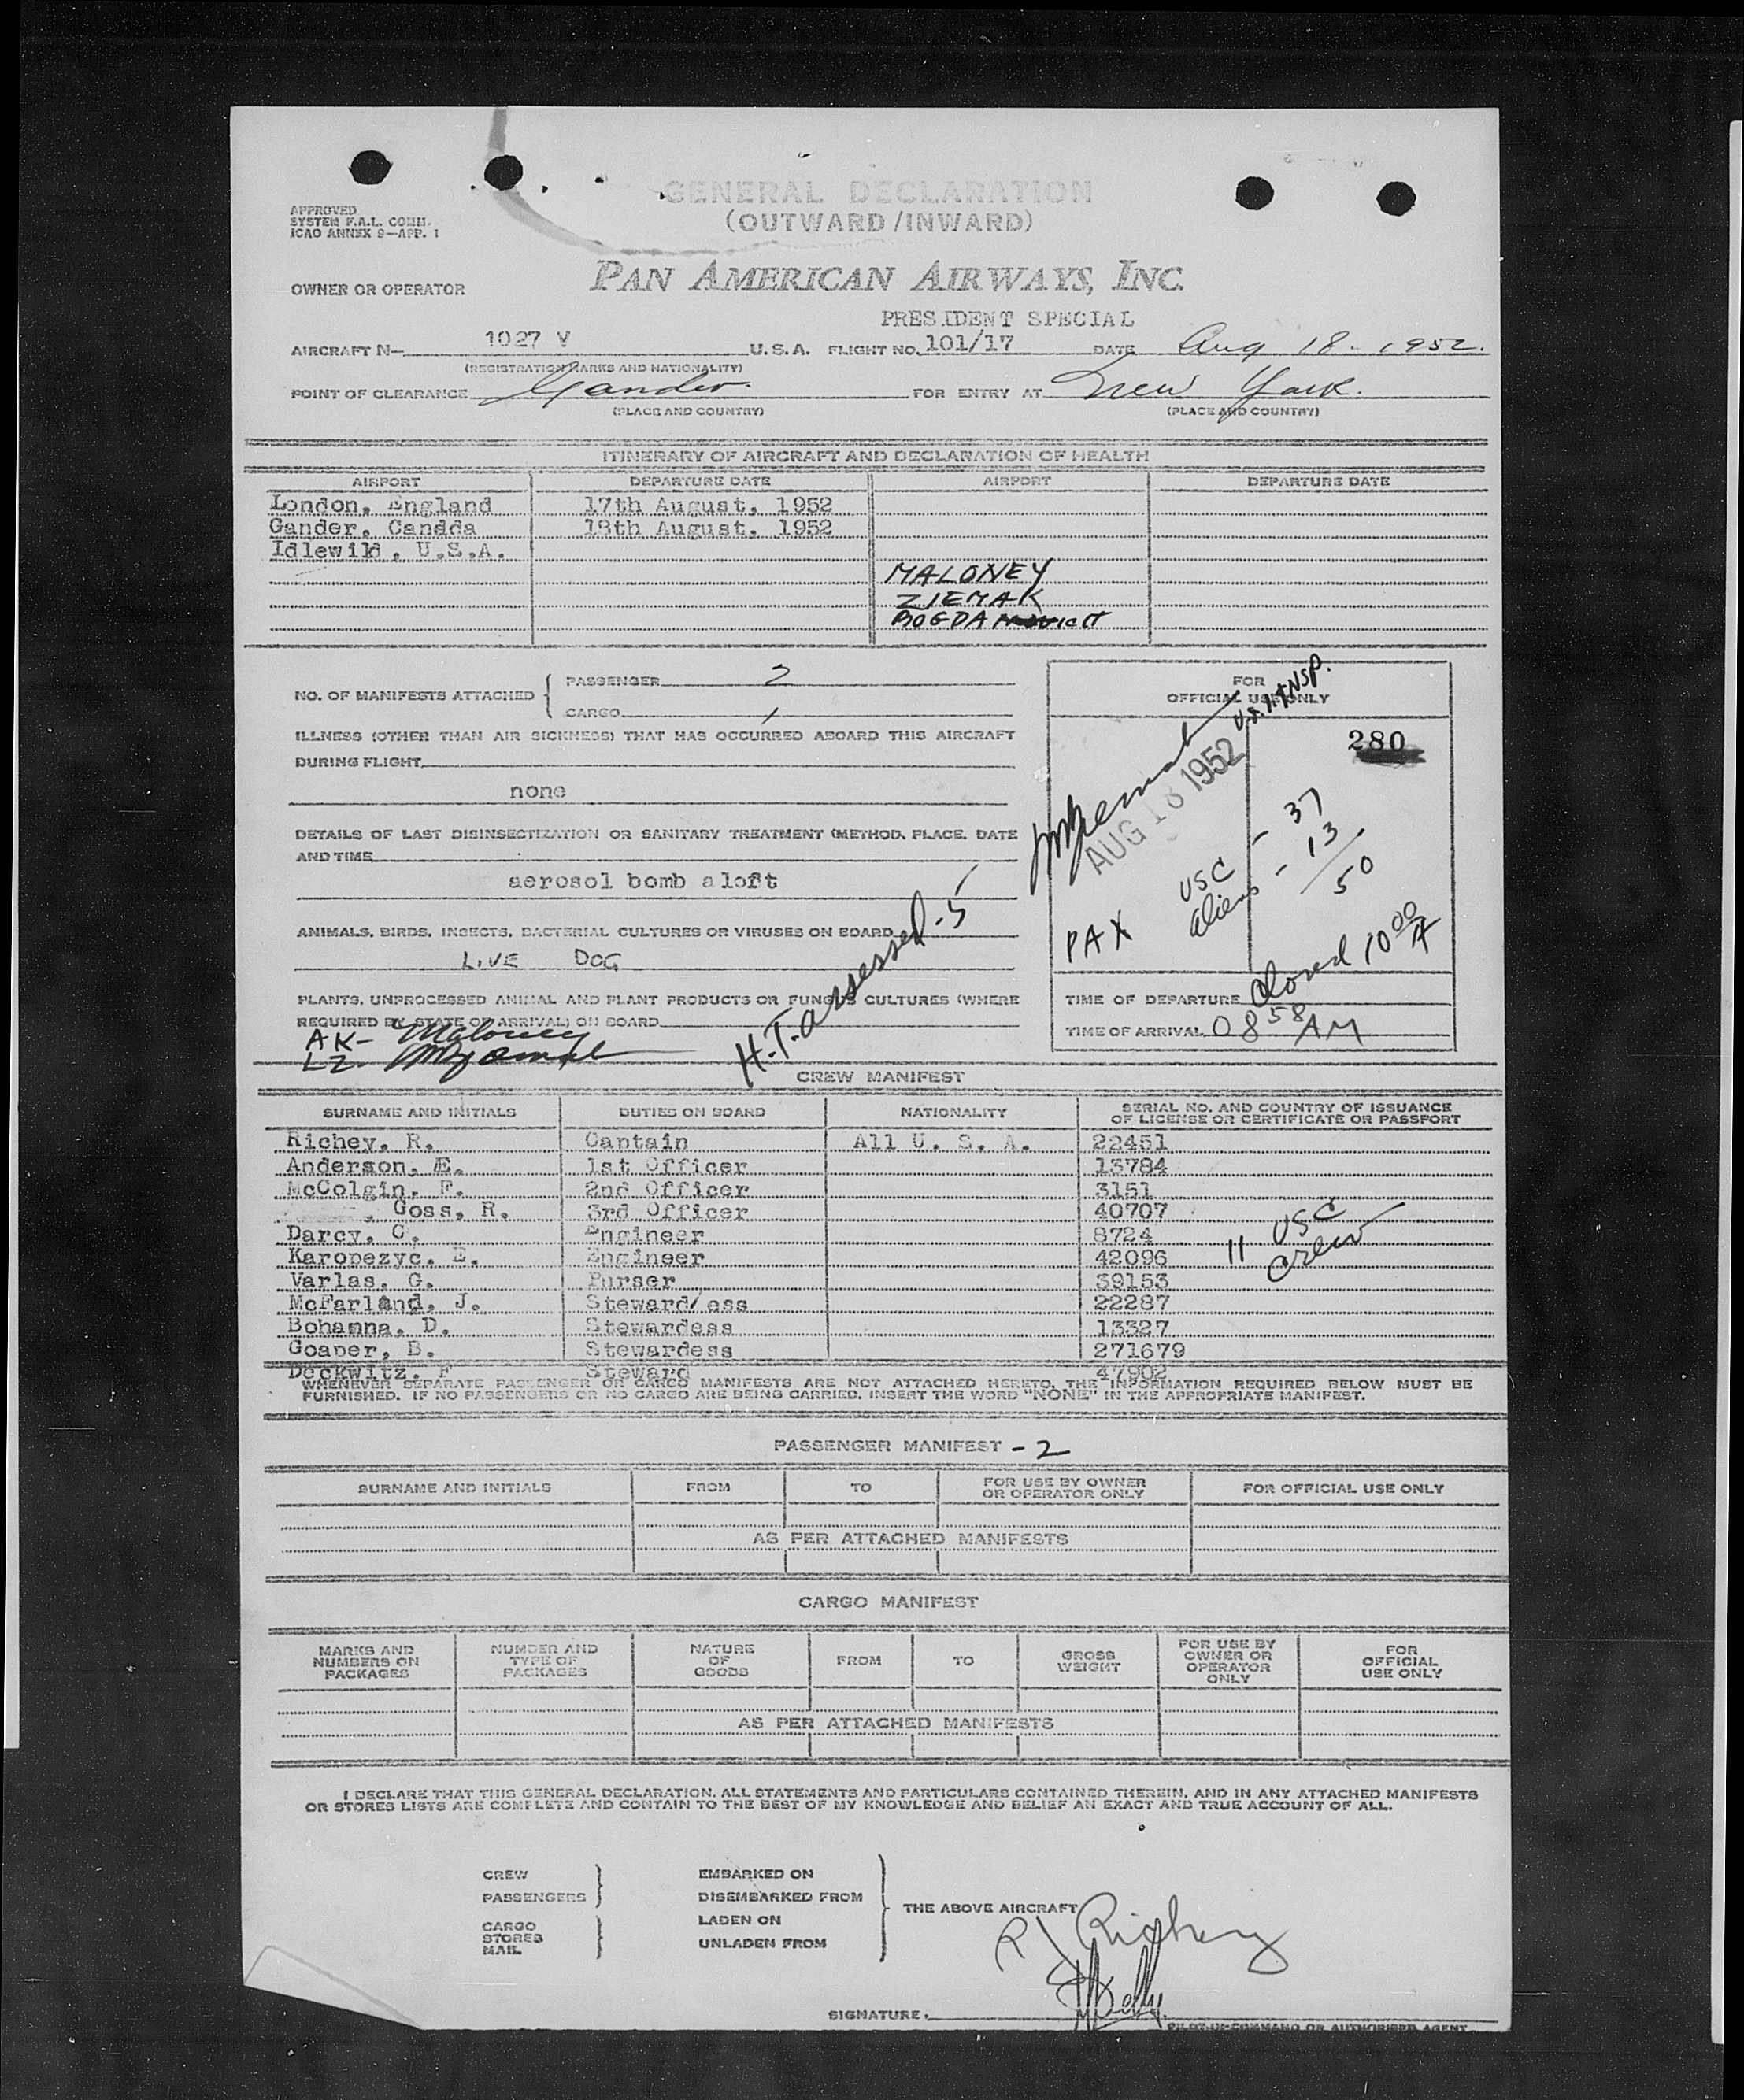 GENERAL DECLARATION
(OUTWARD/INWARD)
APPROVED
SYSTEM F.A.L. COMM.
ICAO ANNEX 9—APP. 1
OWNER OR OPERATOR PAN AMERICAN AIRWAYS, INC.
PRESIDENT SPECIAL
AIRCRAFT N— 1027 V U.S.A. FLIGHT NO. 101/17 DATE Aug 18. 1952.
(REGISTRATION MARKS AND NATIONALITY)
POINT OF CLEARANCE Gander. FOR ENTRY AT New York.
(PLACE AND COUNTRY) (PLACE AND COUNTRY)
ITINERARY OF AIRCRAFT AND DECLARATION OF HEALTH
AIRPORT DEPARTURE DATE AIRPORT DEPARTURE DATE
London, England 17th August, 1952
Gander, Candda 18th August, 1952
Idlewild, U.S.A.
MALONEY
ZIEMAK
BOGDA
NO. OF MANIFESTS ATTACHED
PASSENGER 2
CARGO 1
ILLNESS (OTHER THAN AIR SICKNESS) THAT HAS OCCURRED ABOARD THIS AIRCRAFT
DURING FLIGHT
none
DETAILS OF LAST DISINSECTIZATION OR SANITARY TREATMENT (METHOD, PLACE, DATE
AND TIME
aerosol bomb aloft
ANIMALS, BIRDS, INSECTS, BACTERIAL CULTURES OR VIRUSES ON BOARD
LIVE DOG
PLANTS, UNPROCESSED ANIMAL AND PLANT PRODUCTS OR FUNGUS CULTURES (WHERE
REQUIRED BY STATE OF ARRIVAL) ON BOARD
AK- Maloney
LZ.
H.T. assessed - 5
FOR
OFFICIAL USE ONLY
U.S. INSP.
280
AUG 18 1952
PAX USC - 37
aliens - 13
50
closed 10 00 A
TIME OF DEPARTURE
TIME OF ARRIVAL 08 58 AM
CREW MANIFEST
SURNAME AND INITIALS DUTIES ON BOARD NATIONALITY SERIAL NO. AND COUNTRY OF ISSUANCE
OF LICENSE OR CERTIFICATE OR PASSPORT
Richey, R. Captain All U. S. A. 22451
Anderson, E. 1st Officer 13784
McColgin, F. 2nd Officer 3151
Goss, R. 3rd Officer 40707
Darcy, C. Engineer 8724
Karopezyc, E. Engineer 42096
Varlas, G. Purser 39153
McFarland, J. Steward/ess 22287
Bohanna, D. Stewardess 13327
Goaper, B. Stewardess 271679
Deckwitz, F Steward 47902
11 USC
crew
WHENEVER SEPARATE PASSENGER OR CARGO MANIFESTS ARE NOT ATTACHED HERETO, THE INFORMATION REQUIRED BELOW MUST BE
FURNISHED. IF NO PASSENGERS OR NO CARGO ARE BEING CARRIED, INSERT THE WORD "NONE" IN THE APPROPRIATE MANIFEST.
PASSENGER MANIFEST - 2
SURNAME AND INITIALS FROM TO FOR USE BY OWNER
OR OPERATOR ONLY FOR OFFICIAL USE ONLY
AS PER ATTACHED MANIFESTS
CARGO MANIFEST
MARKS AND
NUMBERS ON
PACKAGES
NUMBER AND
TYPE OF
PACKAGES
NATURE
OF
GOODS
FROM
TO
GROSS
WEIGHT
FOR USE BY
OWNER OR
OPERATOR
ONLY
FOR
OFFICIAL
USE ONLY
AS PER ATTACHED MANIFESTS
I DECLARE THAT THIS GENERAL DECLARATION, ALL STATEMENTS AND PARTICULARS CONTAINED THEREIN, AND IN ANY ATTACHED MANIFESTS
OR STORES LISTS ARE COMPLETE AND CONTAIN TO THE BEST OF MY KNOWLEDGE AND BELIEF AN EXACT AND TRUE ACCOUNT OF ALL.
CREW
PASSENGERS
CARGO
STORES
MAIL
EMBARKED ON
DISEMBARKED FROM
LADEN ON
UNLADEN FROM
THE ABOVE AIRCRAFT
R J Richey
SIGNATURE
PILOT-IN-COMMAND OR AUTHORISED AGENT